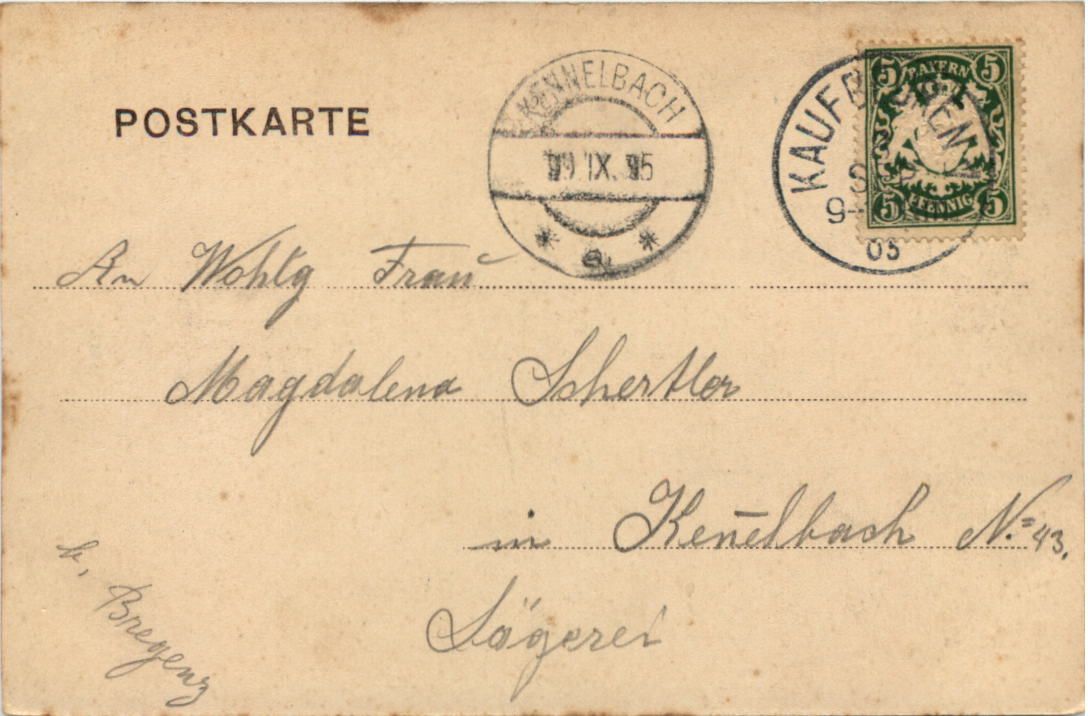 POSTKARTE
KENNELBACH
IX. 05
a
KAUFBEUREN
SEP
9-
05
5 BAYERN 5
5 PFENNIG 5
An Wohlg Frau
Magdalena Schertler
in Ken̄elbach N.= 43.
Sägerei
b. Bregenz